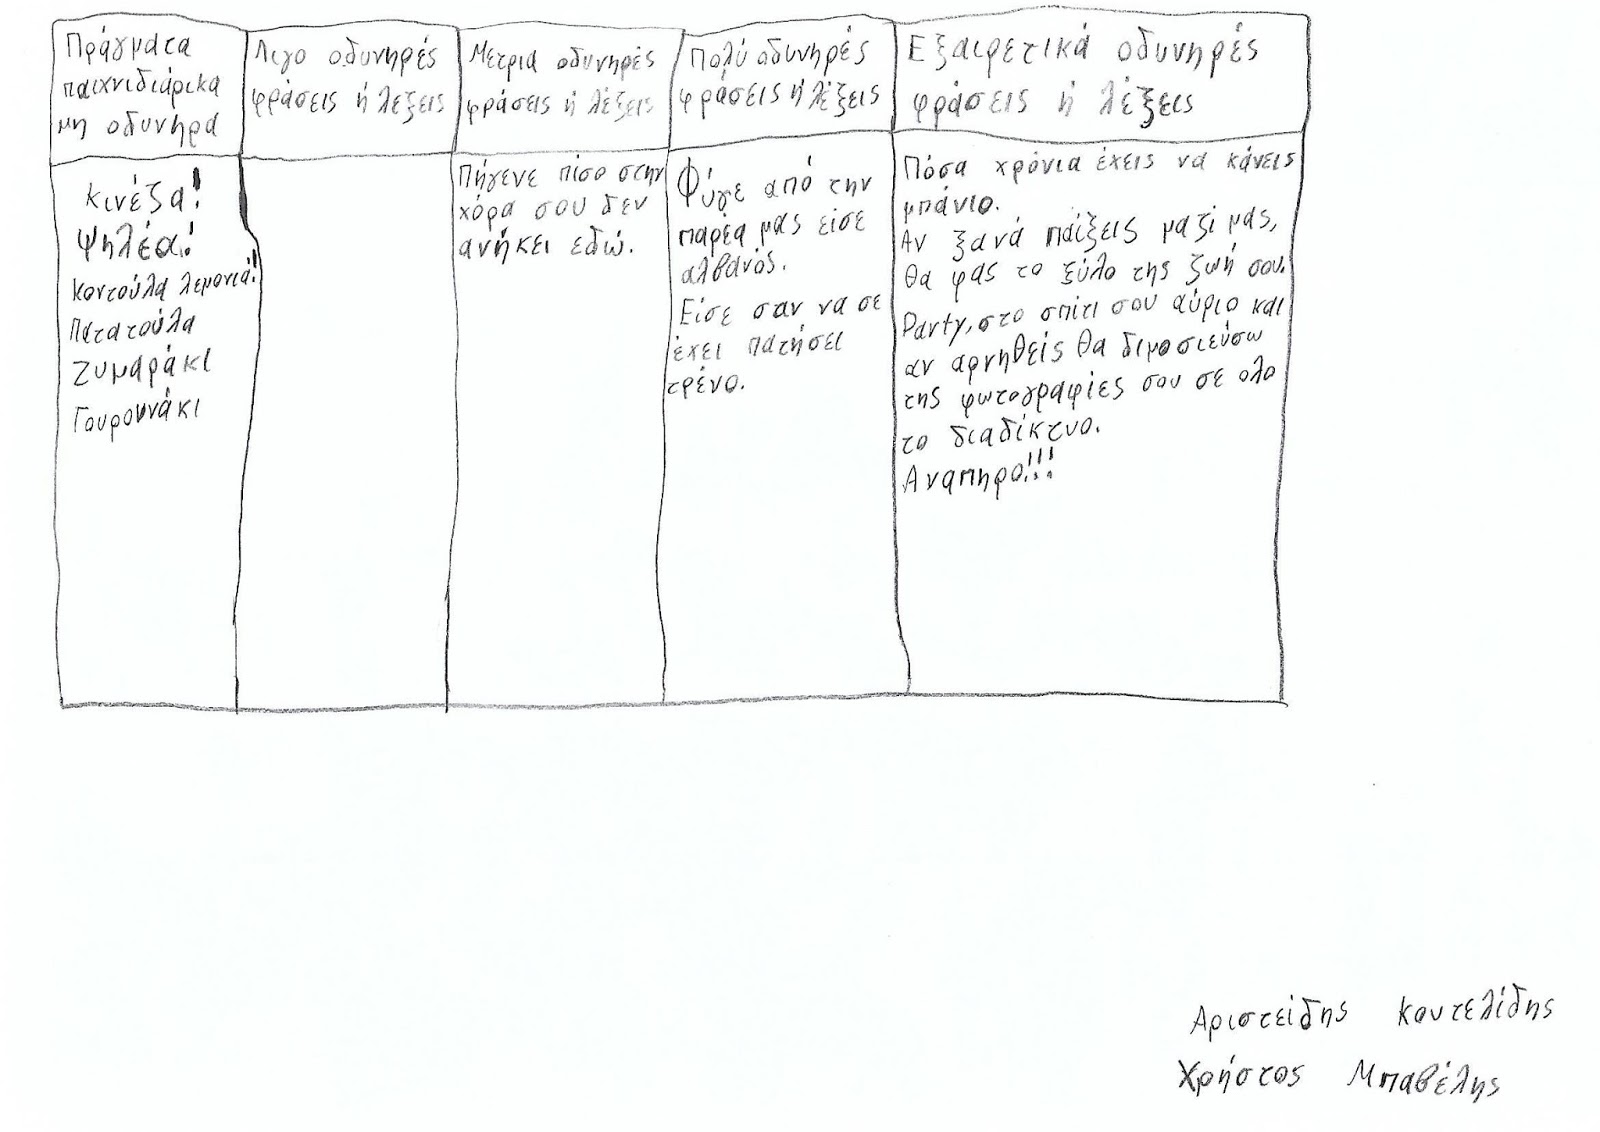 Πράγματα
παιχνιδιάρικα
μη οδυνηρά
Λιγο οδυνηρές
φράσεις ή λέξεις
Μετρια οδυνηρές
φράσεις ή λέξεις
Πολύ οδυνηρές
φράσεις ή λέξεις
Εξαιρετικά οδυνηρές
φράσεις ή λέξεις
κινέζα!
Ψηλέα!
Κοντούλα λεμονιά!
Πατατούλα
Ζυμαράκι
Γουρουνάκι
Πήγενε πίσο στην
χόρα σου δεν
ανήκει εδώ.
Φύγε από την
παρέα μας είσε
αλβανός.
Είσε σαν να σε
έχει πατήσει
τρένο.
Πόσα χρόνια έχεις να κάνεις
μπάνιο.
Αν ξανά παίξεις μαζί μας,
θα φας το ξύλο της ζωή σου.
Party, στο σπίτι σου αύριο και
αν αρνηθείς θα διμοσιεύσω
της φωτογραφίες σου σε ολο
το διαδίκτυο.
Αναπηρο!!!
Αριστείδης Κουτελίδης
Χρήστος Μπαβέλης